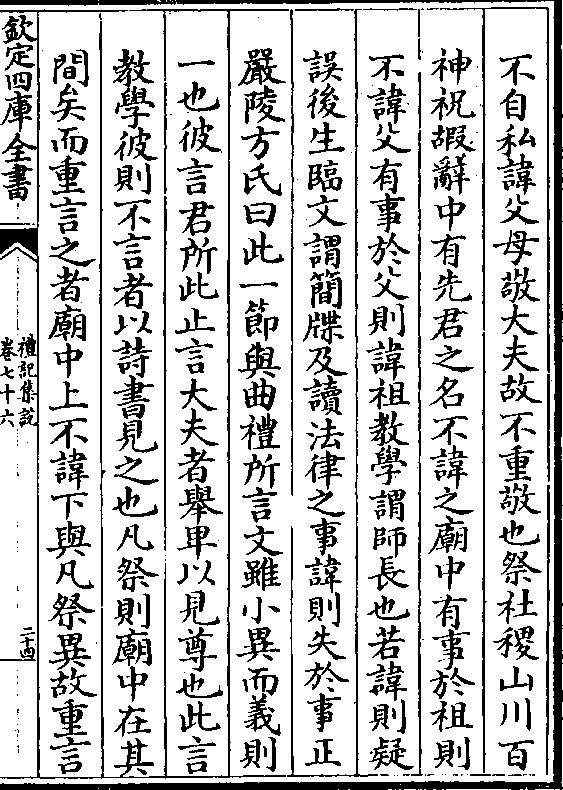 不自私諱父母敬大夫故不重敬也祭社稷山川百
神祝嘏辭中有先君之名不諱之廟中有事於祖則
不諱父有事於父則諱祖教學謂師長也若諱則疑
誤後生臨文謂簡牒及讀法律之事諱則失於事正
嚴陵方氏曰此一節與曲禮所言文雖小異而義則
一也彼言君所此止言大夫者舉卑以見尊也此言
教學彼則不言者以詩書見之也凡祭則廟中在其
間矣而重言之者廟中上不諱下與凡祭異故重言
欽定四庫全書
禮記集說
卷七十六
二十四